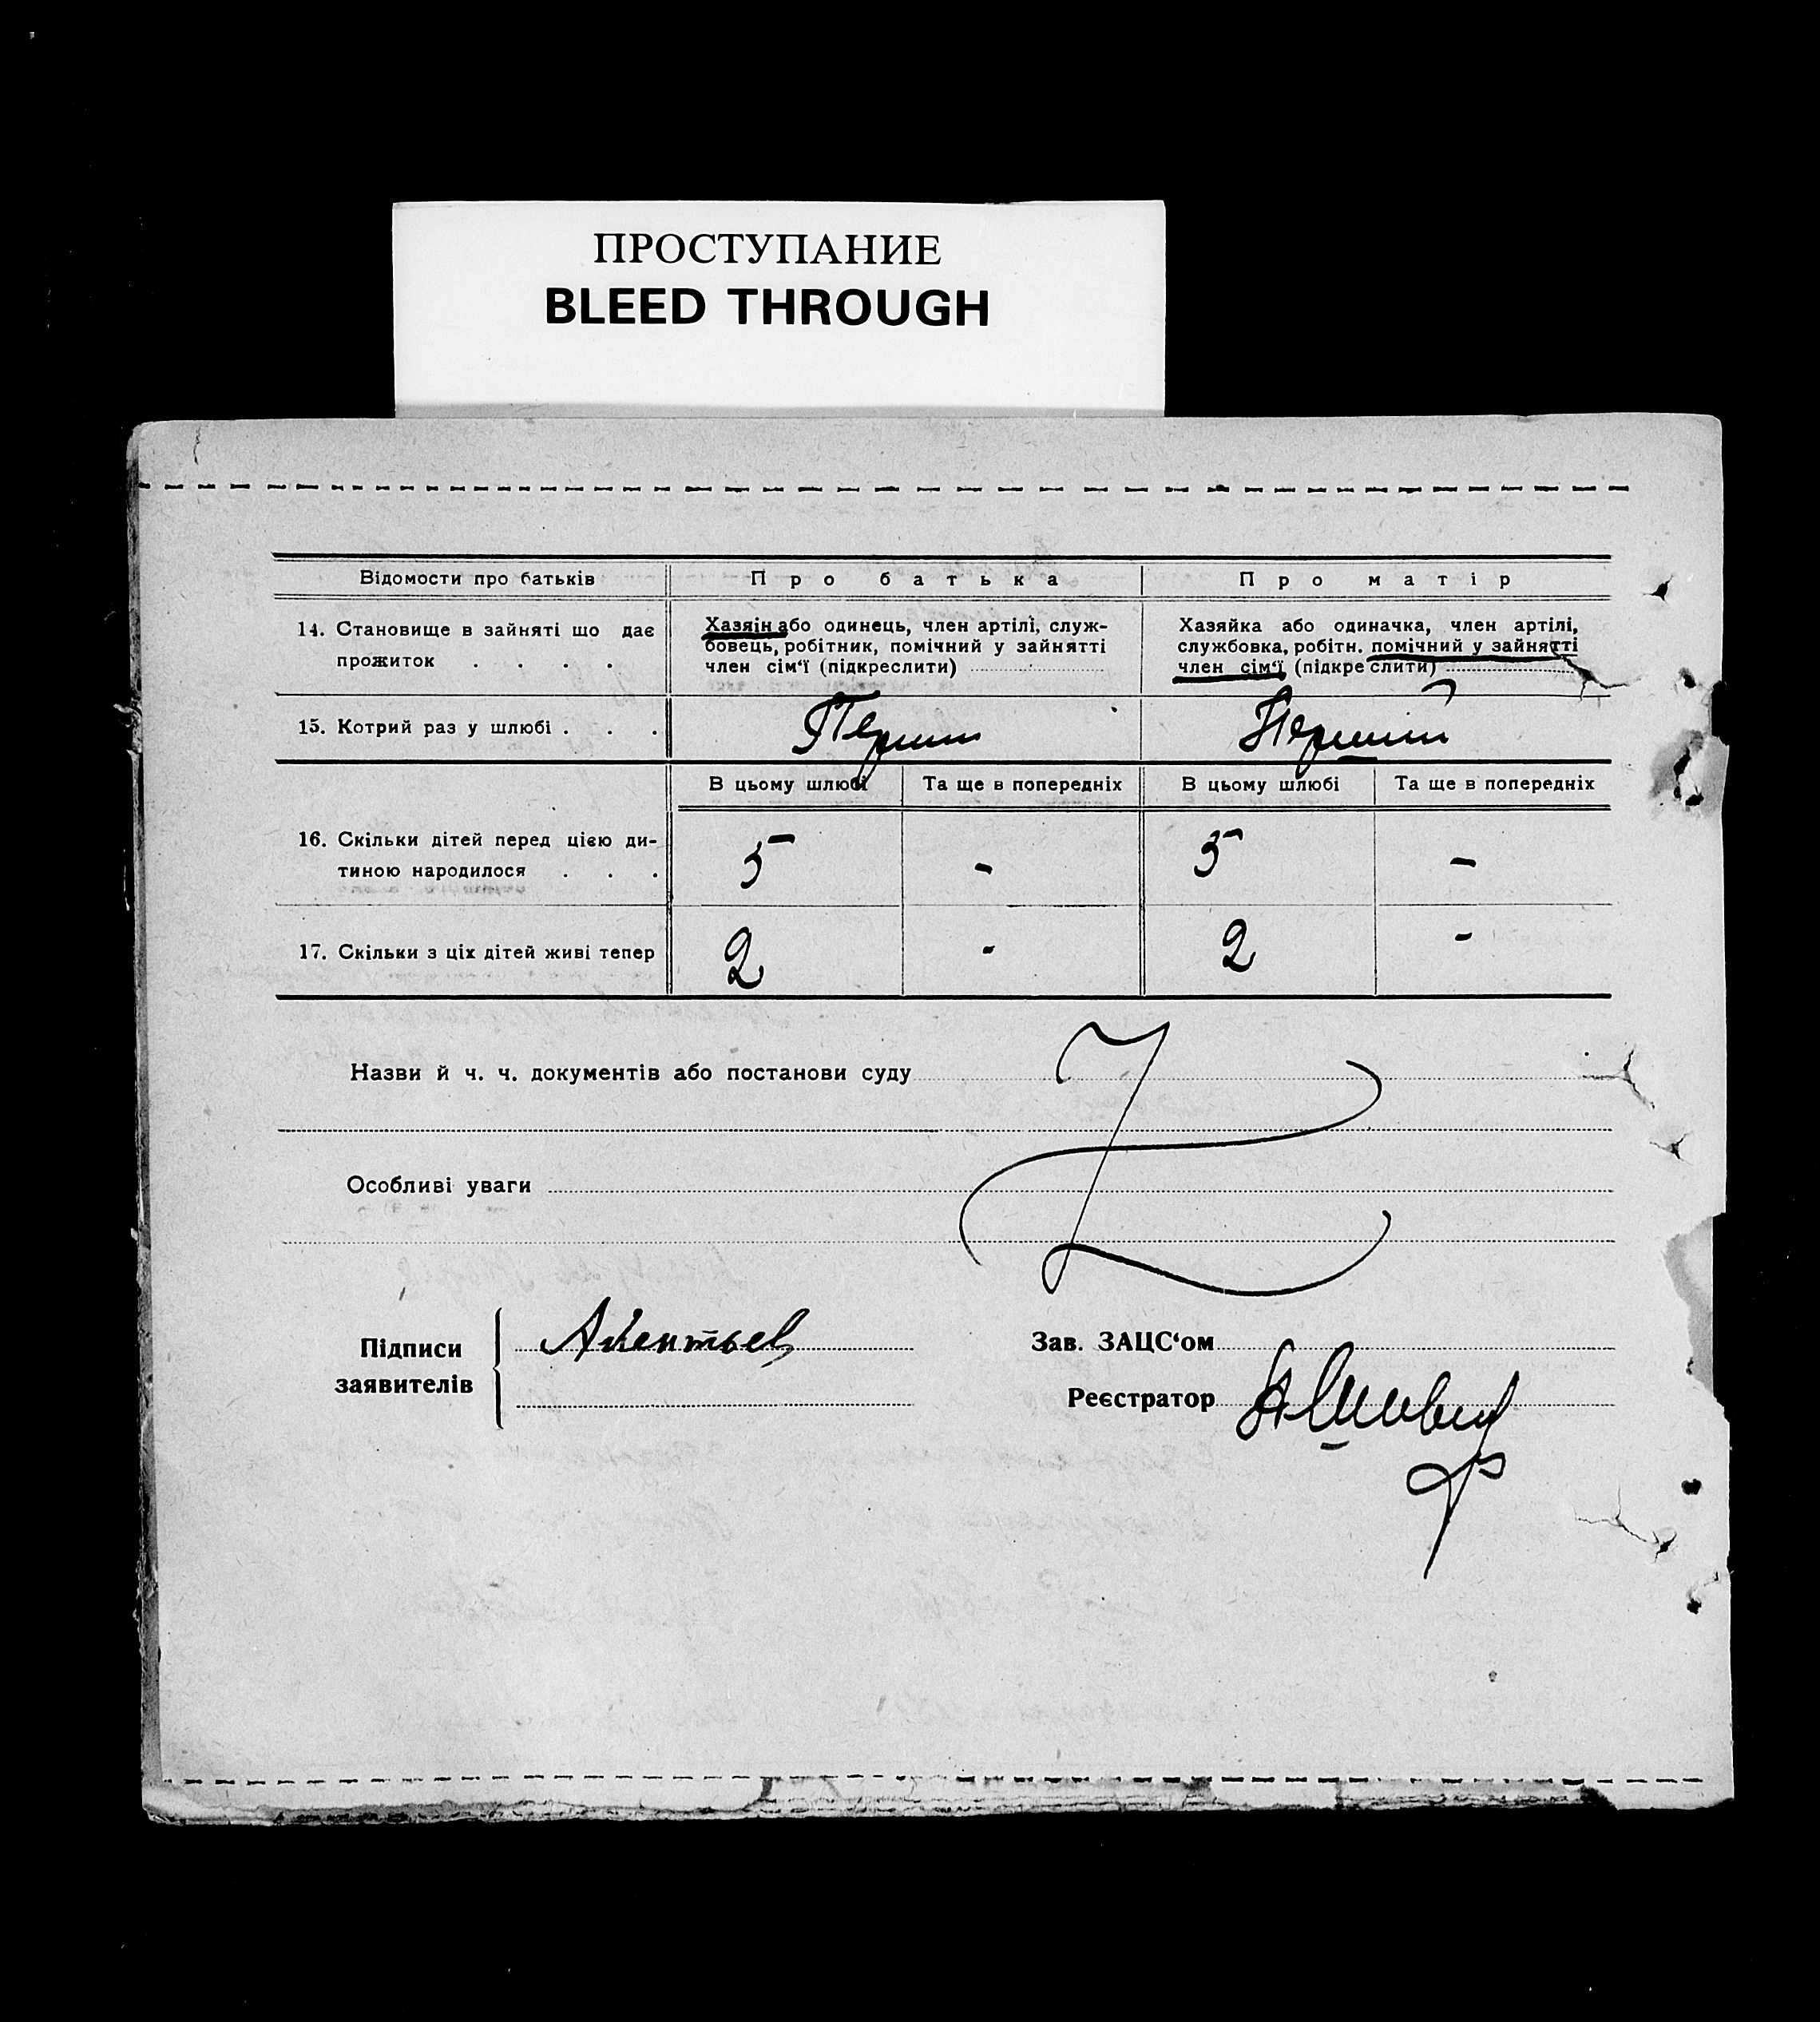 ПРОСТУПАНИЕ
BLEED THROUGH
Відомости про батьків
Про батька
Про матір
14. Становище в зайняті що дає
прожиток . . . .
Хазяін або одинець, член артілі, служ-
бовець, робітник, помічний у зайнятті
член сім‘ї (підкреслити)
Хазяйка або одиначка, член артілі,
службовка, робітн. помічний у зайнятті
член сім‘ї (підкреслити)
15. Котрий раз у шлюбі . . .
Перший
Перший
В цьому шлюбі
Та ще в попередніх
В цьому шлюбі
Та ще в попередніх
16. Скільки дітей перед цією ди-
тиною народилося . . .
5
-
5
-
17. Скільки з ціх дітей живі тепер
2
-
2
-
Назви й ч. ч. документів або постанови суду
Особливі уваги
Підписи
заявителів
Зав. ЗАЦС‘ом
Реєстратор